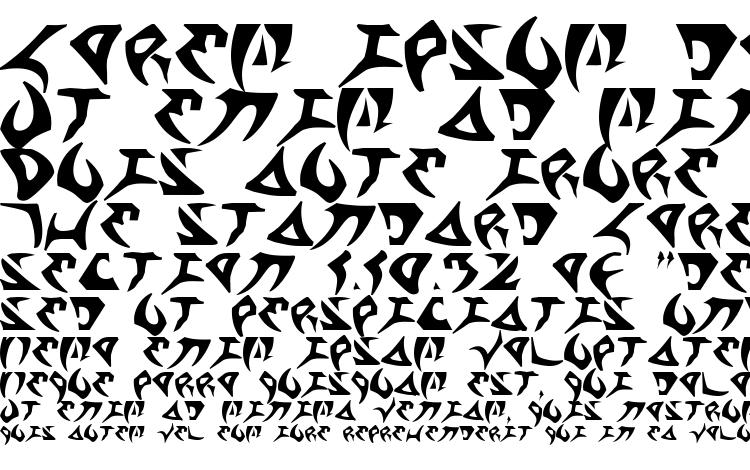 LOREM IPSUM DO
UT ENIM AD MIN
DUIS AUTE IRURE
THE STANDARD LORE
SECTION 1.10.32 OF "DE
SED UT PERSPICIATIS UN
NEMO ENIM IPSAM VOLUPTATE
NEQUE PORRO QUISQUAM EST, QUI DOLO
UT ENIM AD MINIMA VENIAM, QUIS NOSTRU
QUIS AUTEM VEL EUM IURE REPREHENDERIT QUI IN EA VOL